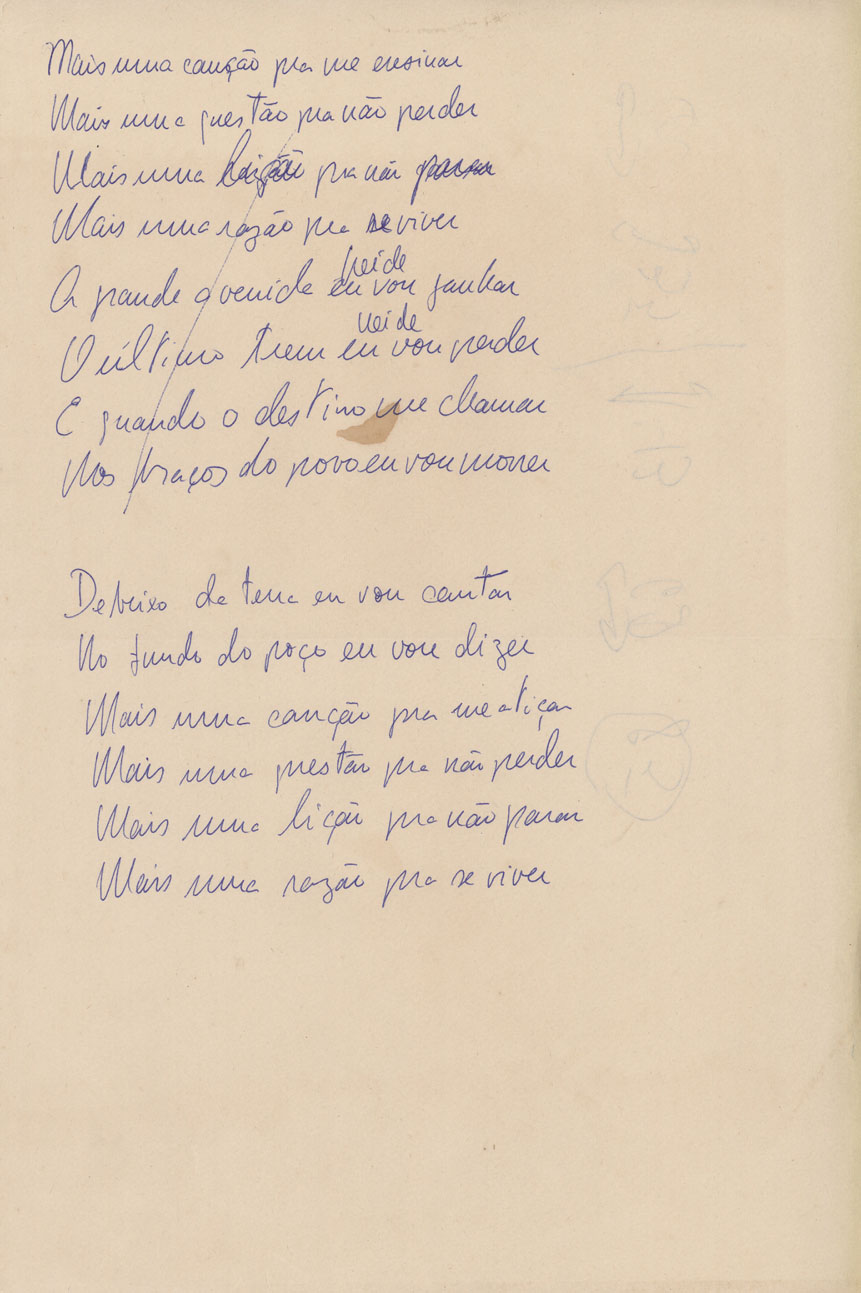 Mais uma canção pra me ensinar
Mais uma questão pra não perder
Mais uma lição pra não parar
Mais uma razão pra se viver
heide
A grande avenida eu vou ganhar
heide
O último trem eu vou perder
E quando o destino me chamar
Nos braços do povo eu vou morrer
Debaixo da terra eu vou cantar
No fundo do poço eu vou dizer
Mais uma canção pra me atiçar
Mais uma questão pra não perder
Mais uma lição pra não parar
Mais uma razão pra se viver